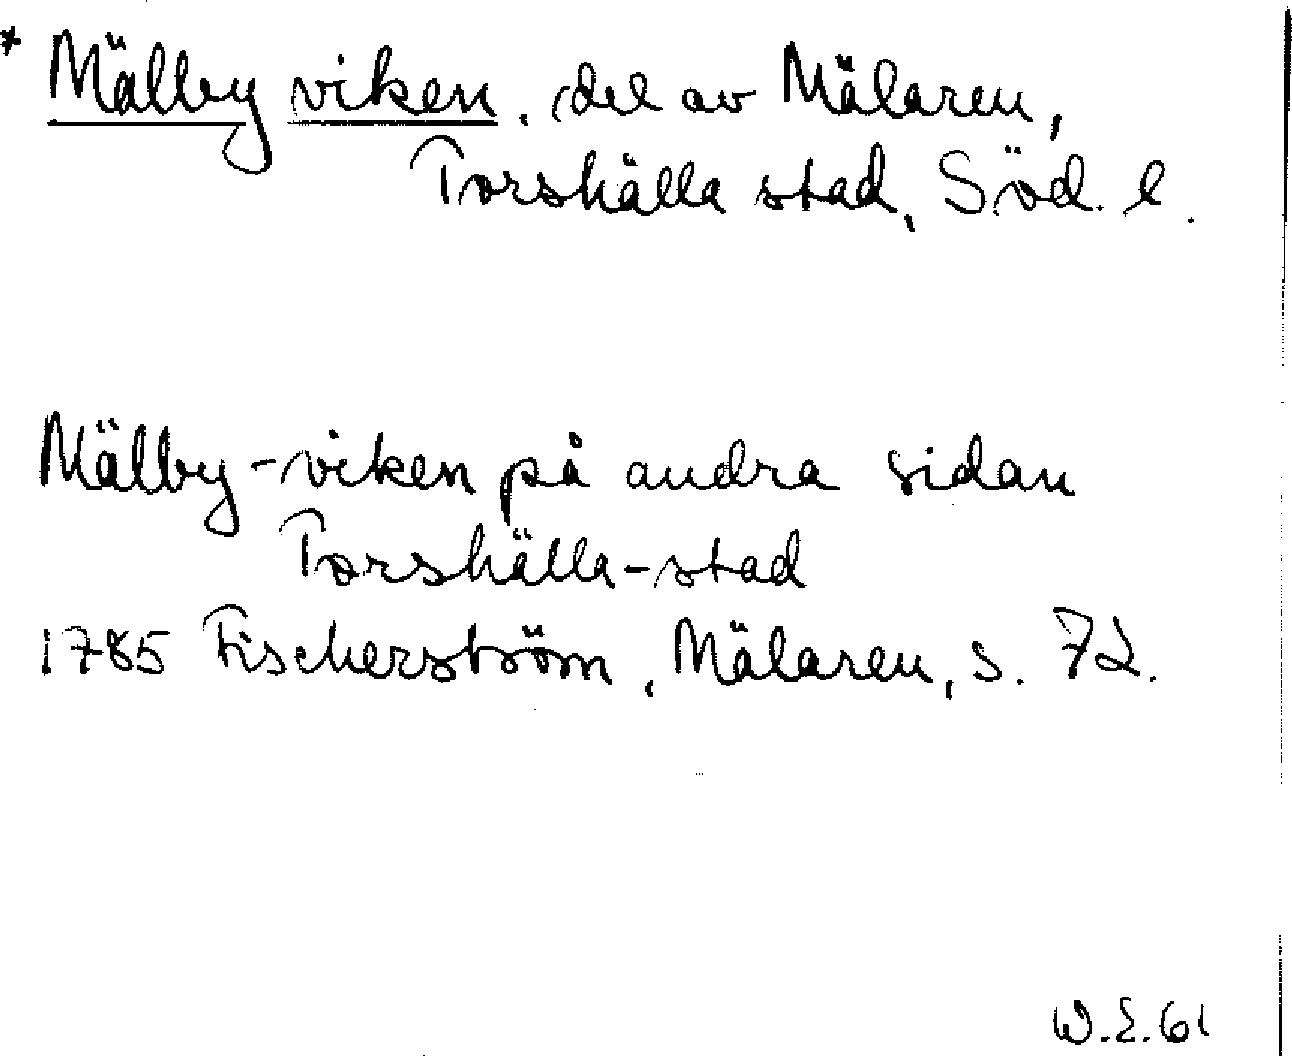 * Mälby viken, del av Mälaren,
Torshälla stad, Söd. l.
Mälby-viken på andra sidan
Torshälla-stad
1785 Fischerström, Mälaren, s. 72.
W.E.61